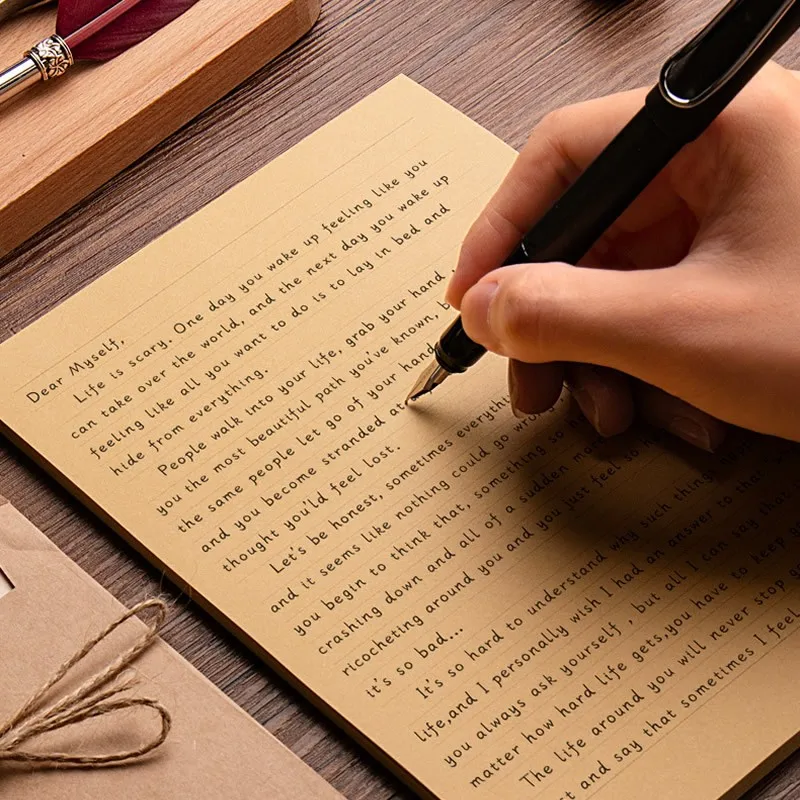 Dear Myself,
Life is scary. One day you wake up feeling like you
can take over the world, and the next day you wake up
feeling like all you want to do is to lay in bed and
hide from everything.
People walk into your life, grab your hand
you the most beautiful path you've known,
the same people let go of your hand
and you become stranded at
thought you'ld feel lost.
Let's be honest, sometimes everything
and it seems like nothing could go wrong
you begin to think that, something so
crashing down and all of a sudden
ricocheting around you and you just feel so
it's so bad...
It's so hard to understand why such things
life,and I personally wish I had an answer to
you always ask yourself , but all I can say that
matter how hard life gets,you have to keep
The life around you will never stop
and say that sometimes I feel